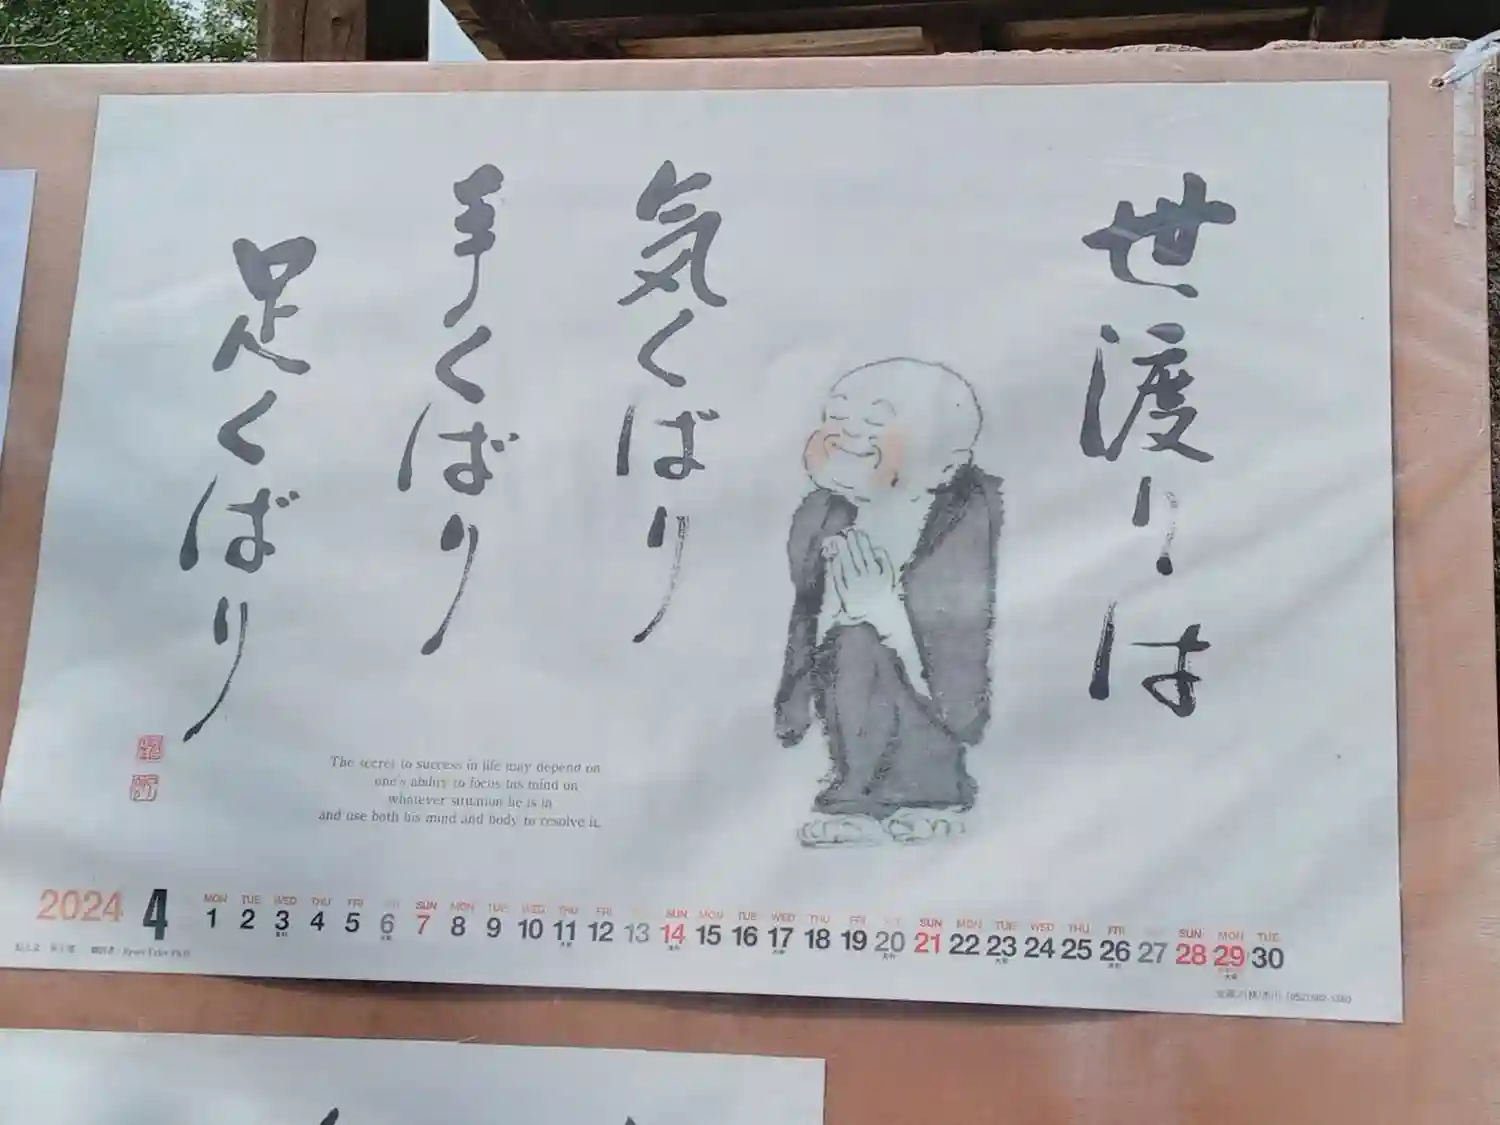 世渡りは
気くばり
手くばり
足くばり
The secret to success in life may depend on
one's ability to focus his mind on
whatever situation he is in
and use both his mind and body to resolve it.
2024 4
MON TUE WED THU FRI SUN MON TUE WED THU FRI SUN MON TUE WED THU FRI SAT SUN MON TUE WED THU FRI SUN MON TUE
1 2 3 4 5 6 7 8 9 10 11 12 13 14 15 16 17 18 19 20 21 22 23 24 25 26 27 28 29 30